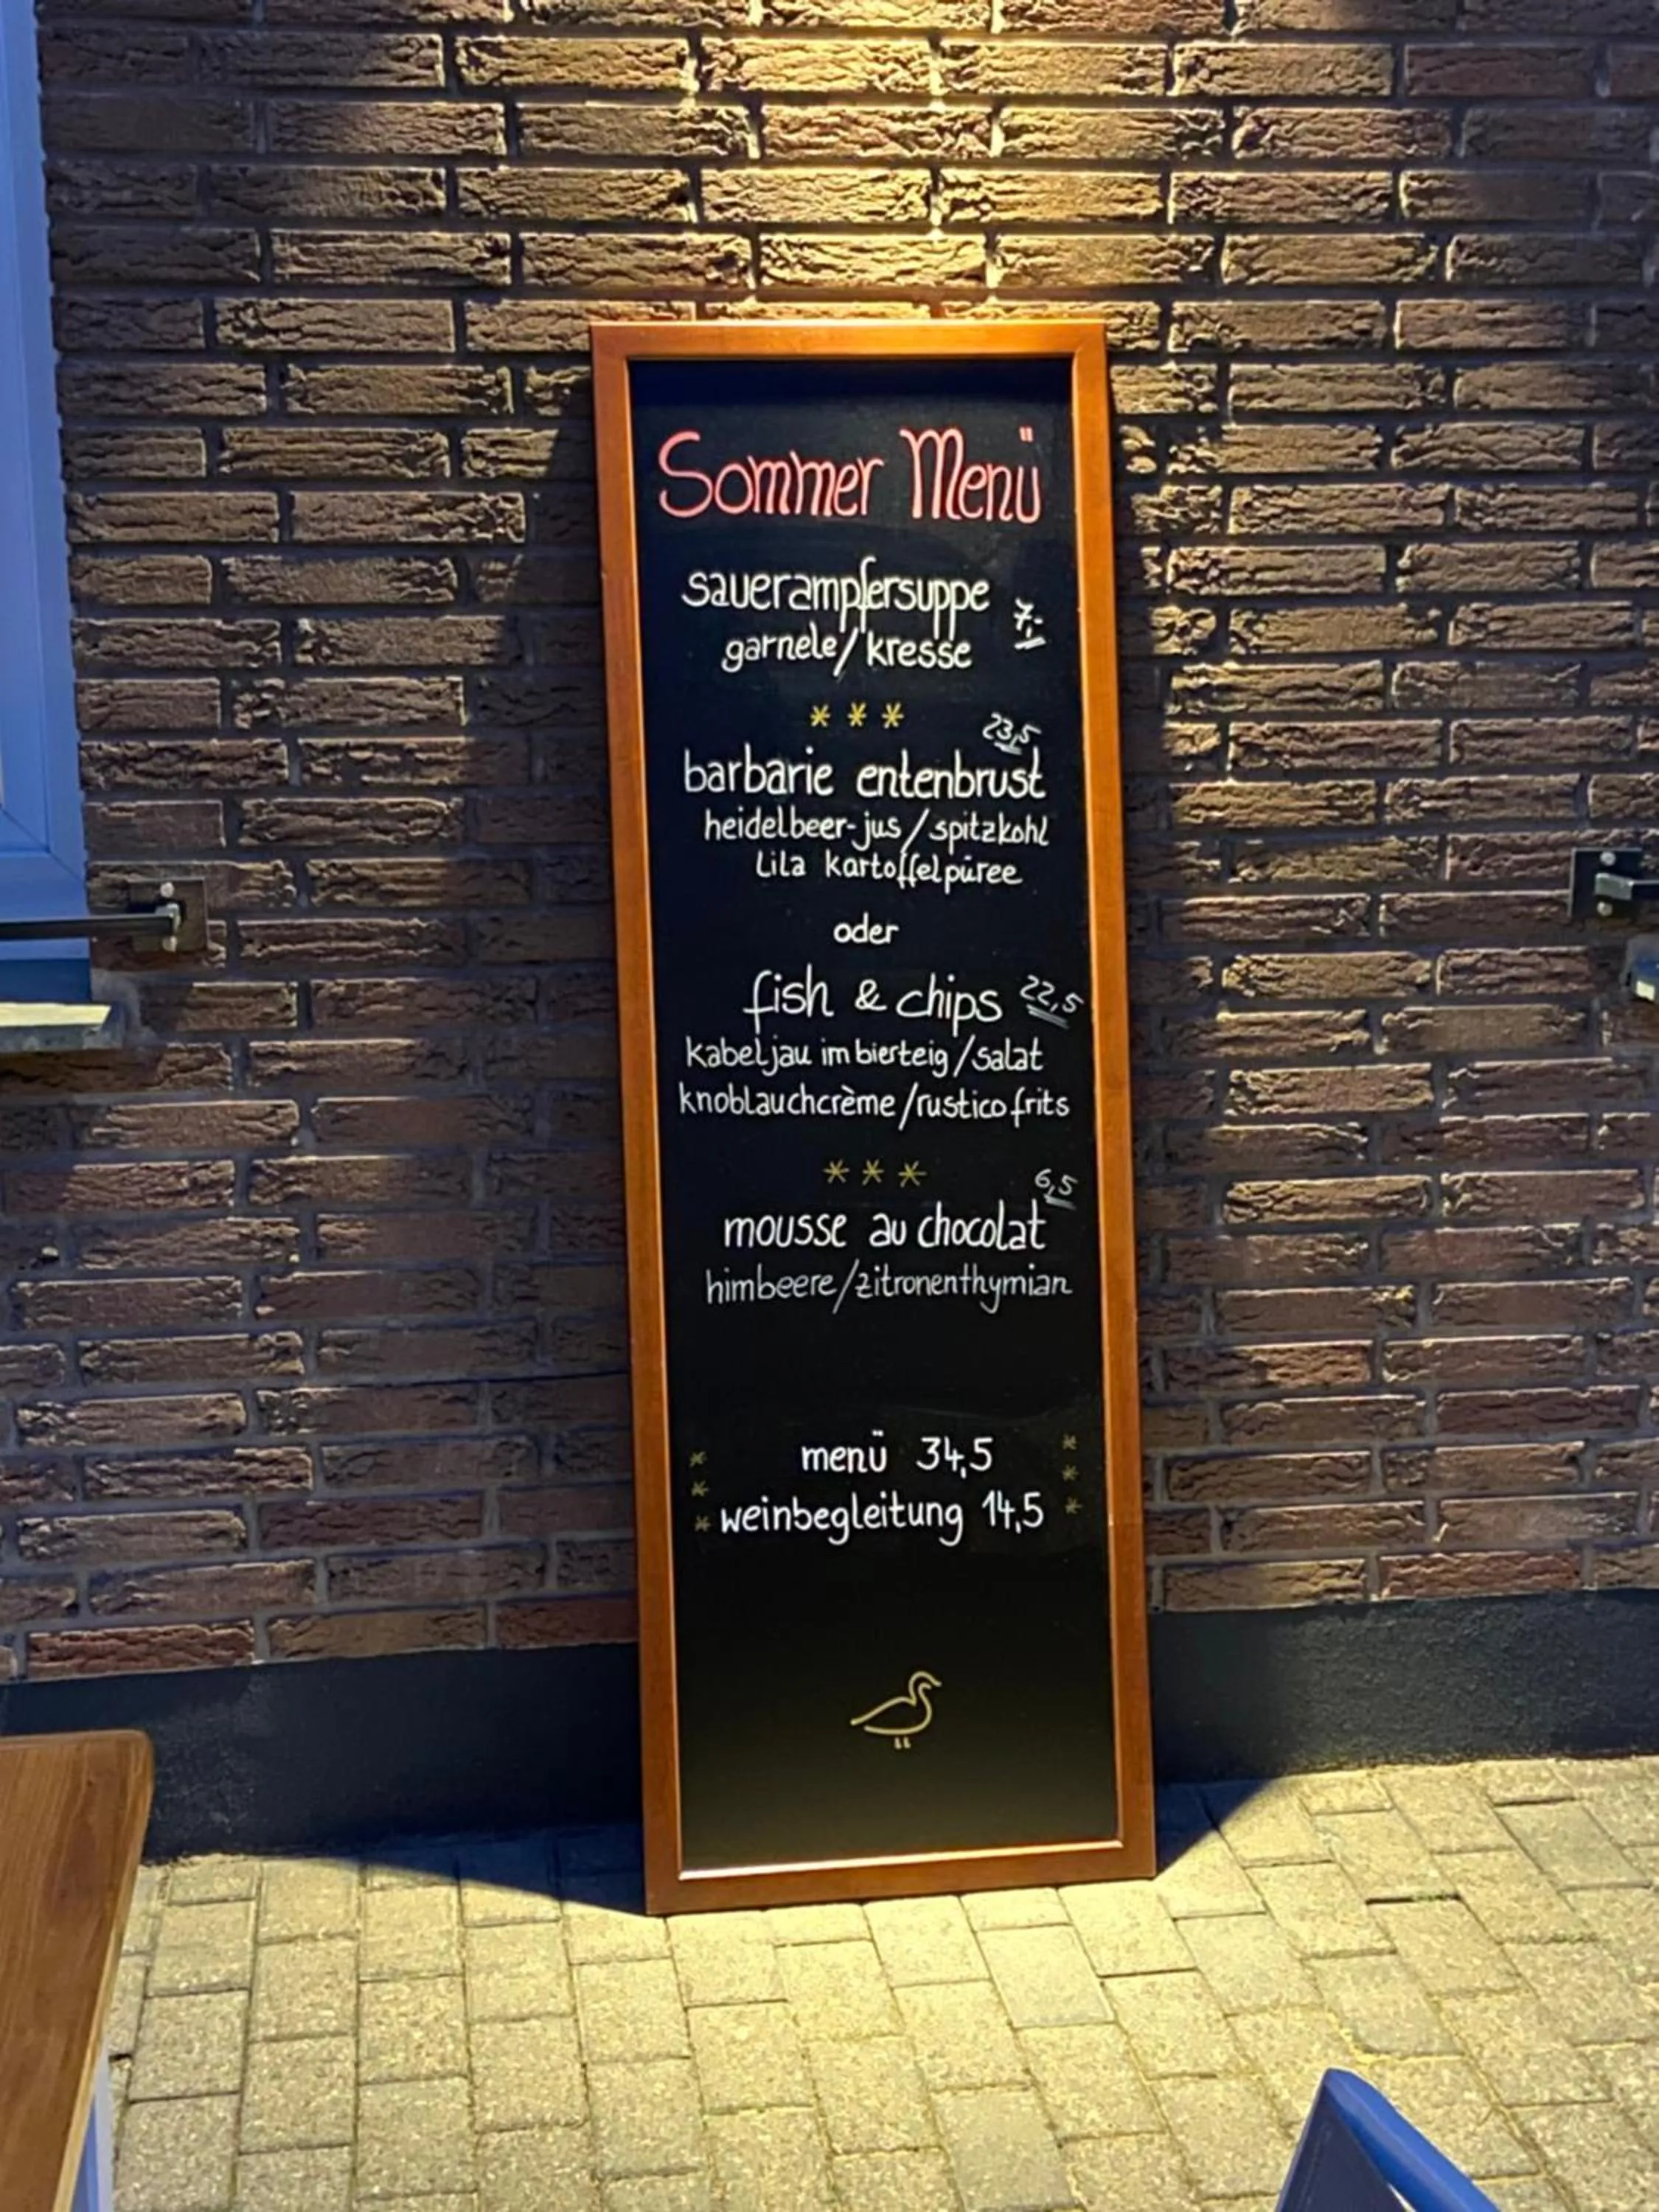 Sommer Menü
sauerampfersuppe 7,-
garnele/kresse
* * *
23,5
barbarie entenbrust
heidelbeer-jus/spitzkohl
Lila kartoffelpüree
oder
fish & chips 22,5
kabeljau im bierteig/salat
knoblauchcrème/rustico frits
* * *
6,5
mousse au chocolat
himbeere/zitronenthymian
menü 34,5
weinbegleitung 14,5